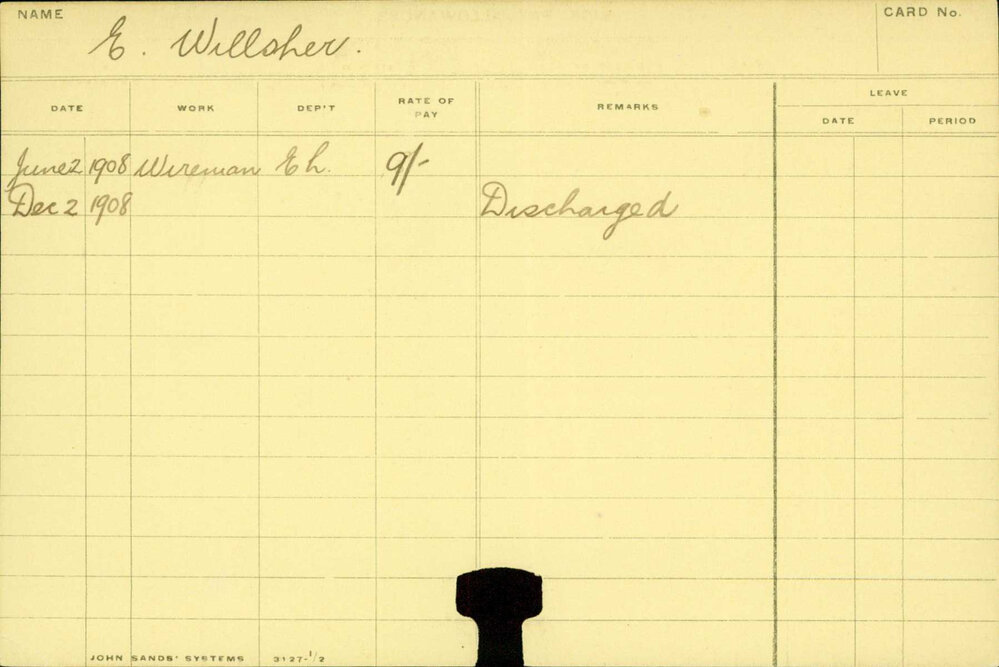 NAME
E. Willsher.
CARD No.
DATE WORK DEP'T RATE OF PAY REMARKS LEAVE
DATE PERIOD
June 2 1908 Wireman E L. 9/-
Dec 2 1908 Discharged
JOHN SANDS' SYSTEMS 3127-1/2